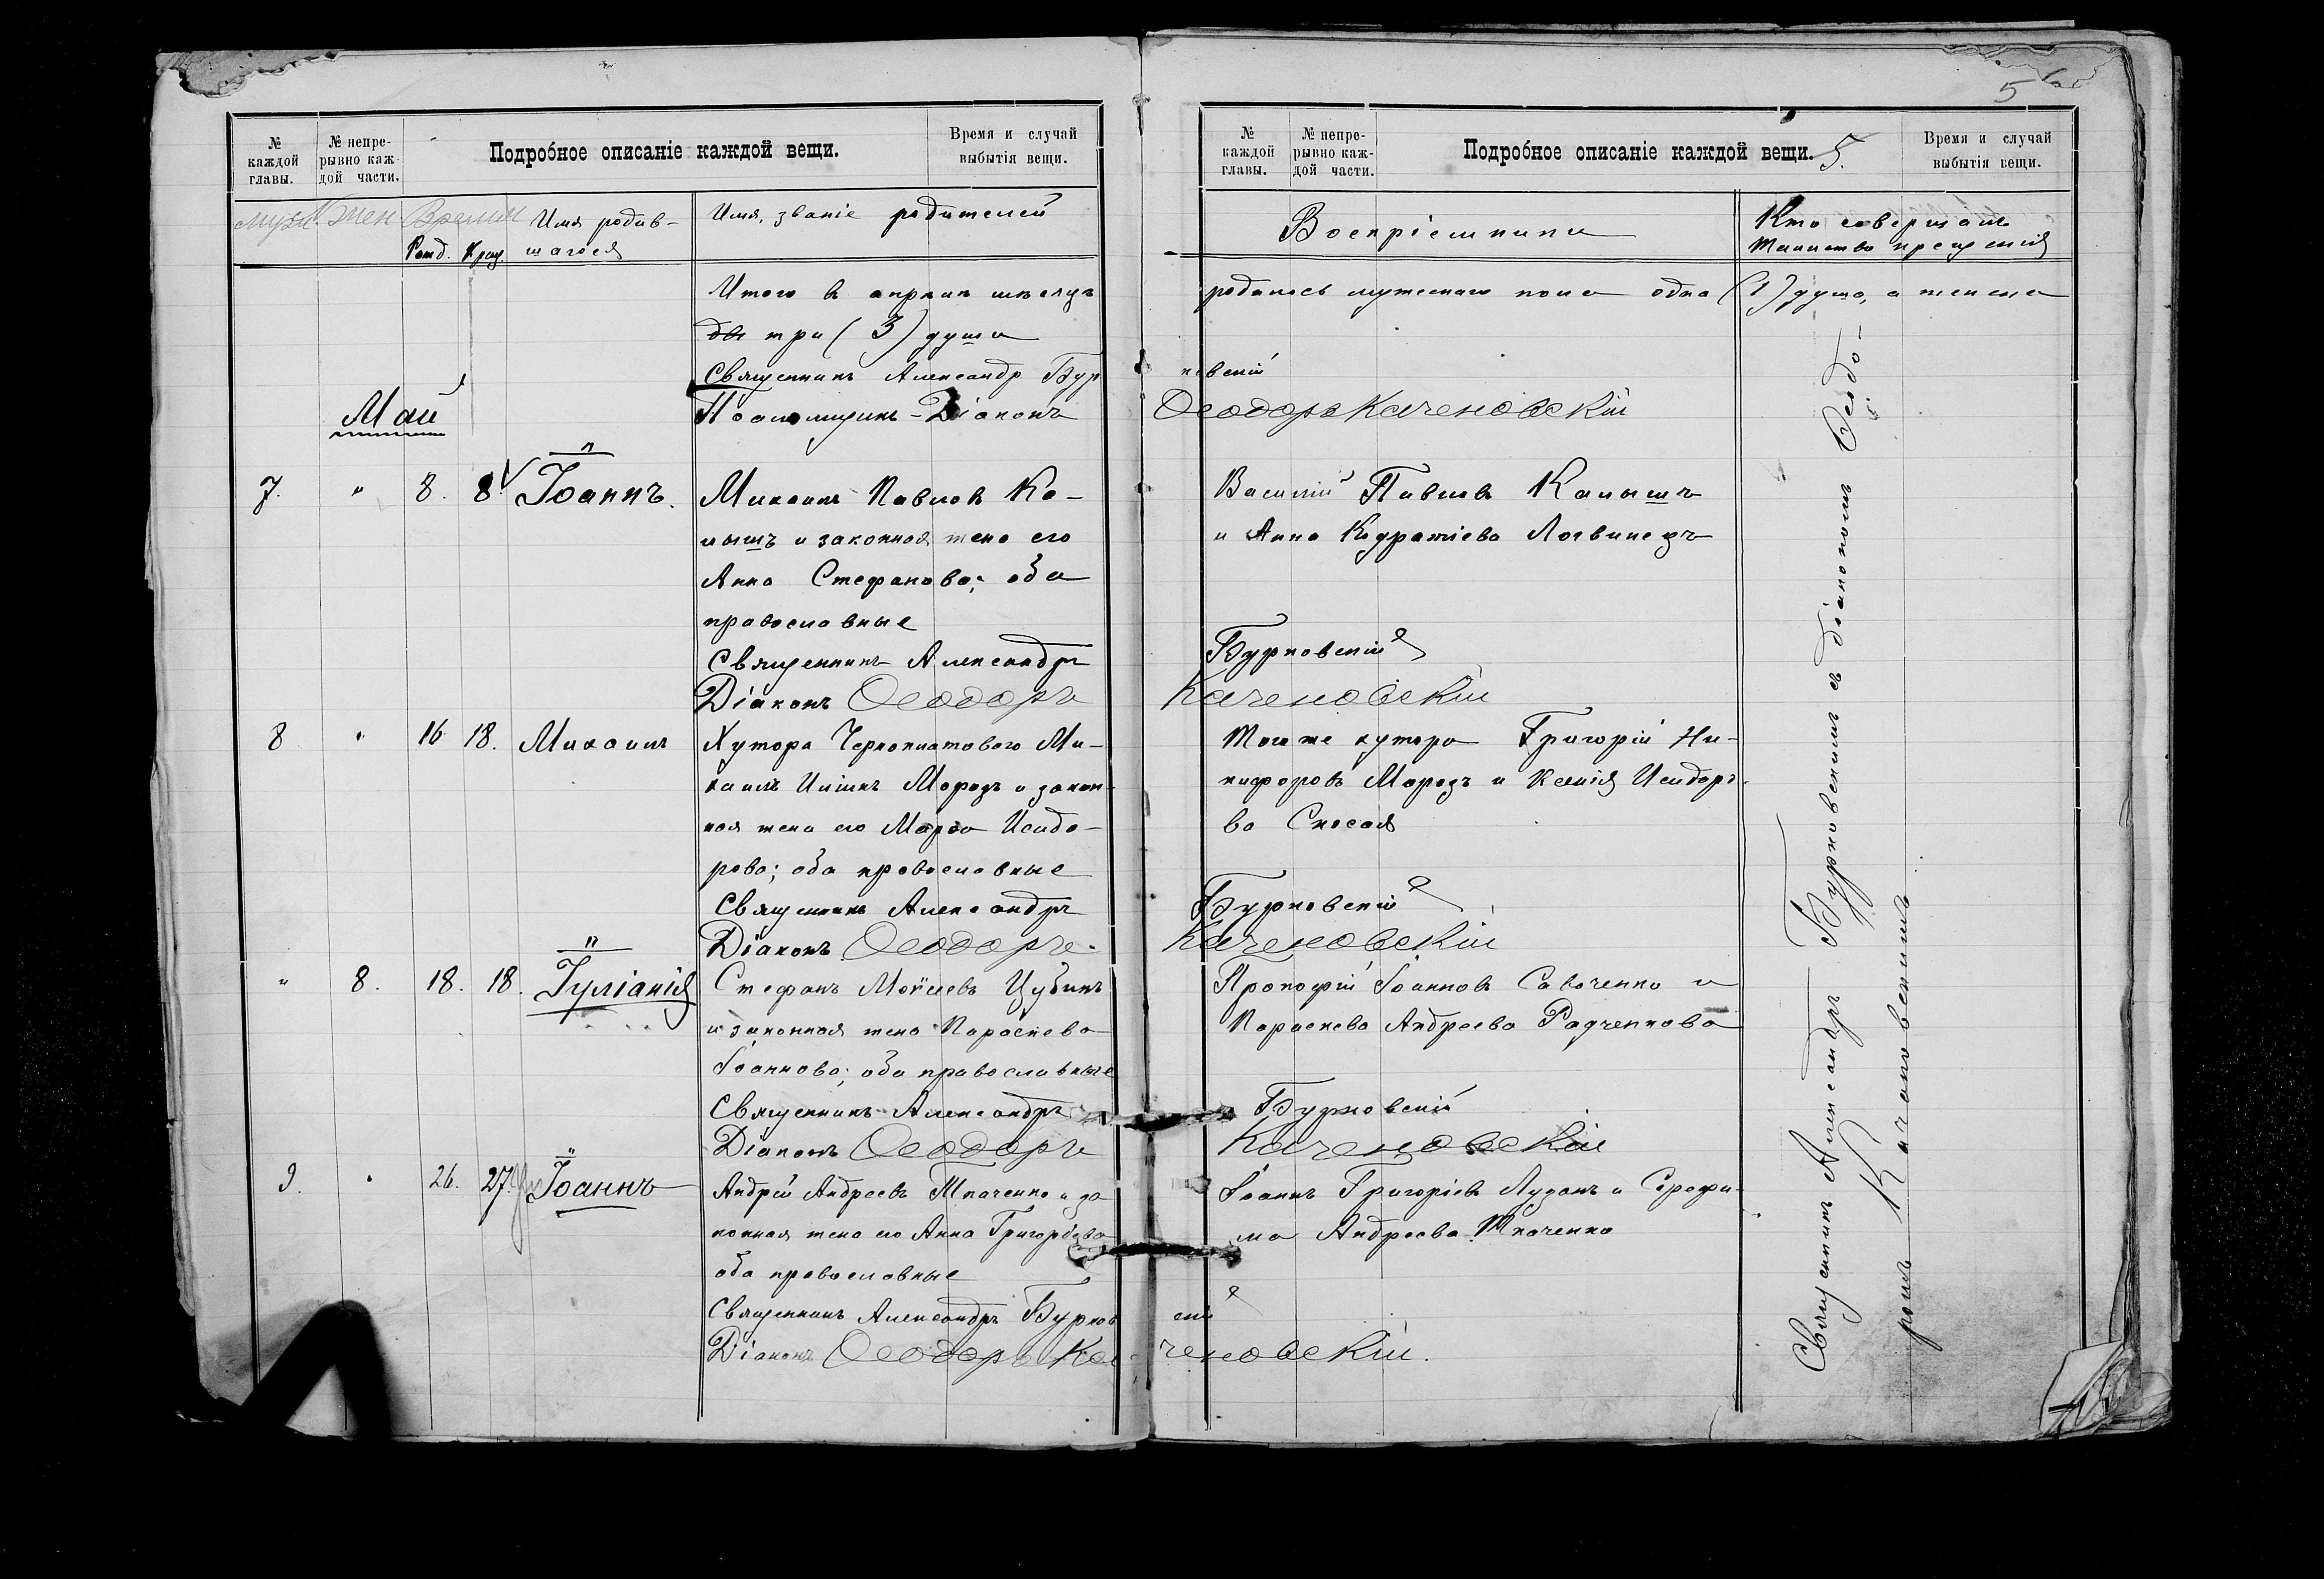 5
№ каждой главы.
№ непре-рывно каж-дой части.
Подробное описаніе каждой вещи.
Время и случай выбытія вещи.
муж. жен. Время
Рожд. Крещ.
Имя родив-
шагося
Имя, званіе родителей
Итого в апрѣлѣ мѣсяцѣ
три (3) души
Священникъ Александр Бур
Псаломщикъ-Діаконъ
Май
7. " 8. 8. Іоаннъ.
Михаилъ Павловъ Ка-
лышъ и законная жена его
Анна Стефанова; оба
православные
Священникъ Александръ
Діаконъ Ѳеодоръ
8 " 16 18. Михаилъ
Хутора Чернопиатового Ми-
хаилъ Морозъ и закон-
ная жена его Марѳа Исидо-
рова; оба православные
Священникъ Александръ
Діаконъ Ѳеодоръ
" 8. 18. 18. Іуліанія
Стефанъ Моѵсеевъ Цубинъ
и законная жена Параскева
Іоаннова; оба православные
Священникъ Александръ
Діаконъ Ѳеодоръ
9. " 26. 27. Іоаннъ
Андрей Андреевъ Ткаченко и за
конная жена его Анна Григоріева
оба православные
Священникъ Александръ Бурков
Діаконъ Ѳеодоръ Ка
№ каждой главы.
№ непре-рывно каж-дой части.
Подробное описаніе каждой вещи.
5.
Время и случай выбытія вещи.
Воспріемники
Кто совершалъ
таинство крещенія
родилось мужескаго пола одна (1) душа, а женска
ковскій
Ѳеодоръ Каченовскій
Василій Павловъ Калышъ
и Анна Кодратіева Логвинецъ
Бурковскій
Каченовскій
Того же хутора Григорій Ни-
кифоровъ Морозъ и Ксенія Исидоро-
ва
Бурковскій
Каченовскій
Прокофій Іоанновъ Савченко и
Параскева Андреева Радченкова
Бурковскій
Каченовскій
Іоаннъ Григоріевъ Лузанъ и Серафи-
ма Андреева Ткаченко
скій
ченовскій.
Священникъ Александръ Бурковскимъ съ діакономъ Ѳеодо-
ромъ Качановскимъ.